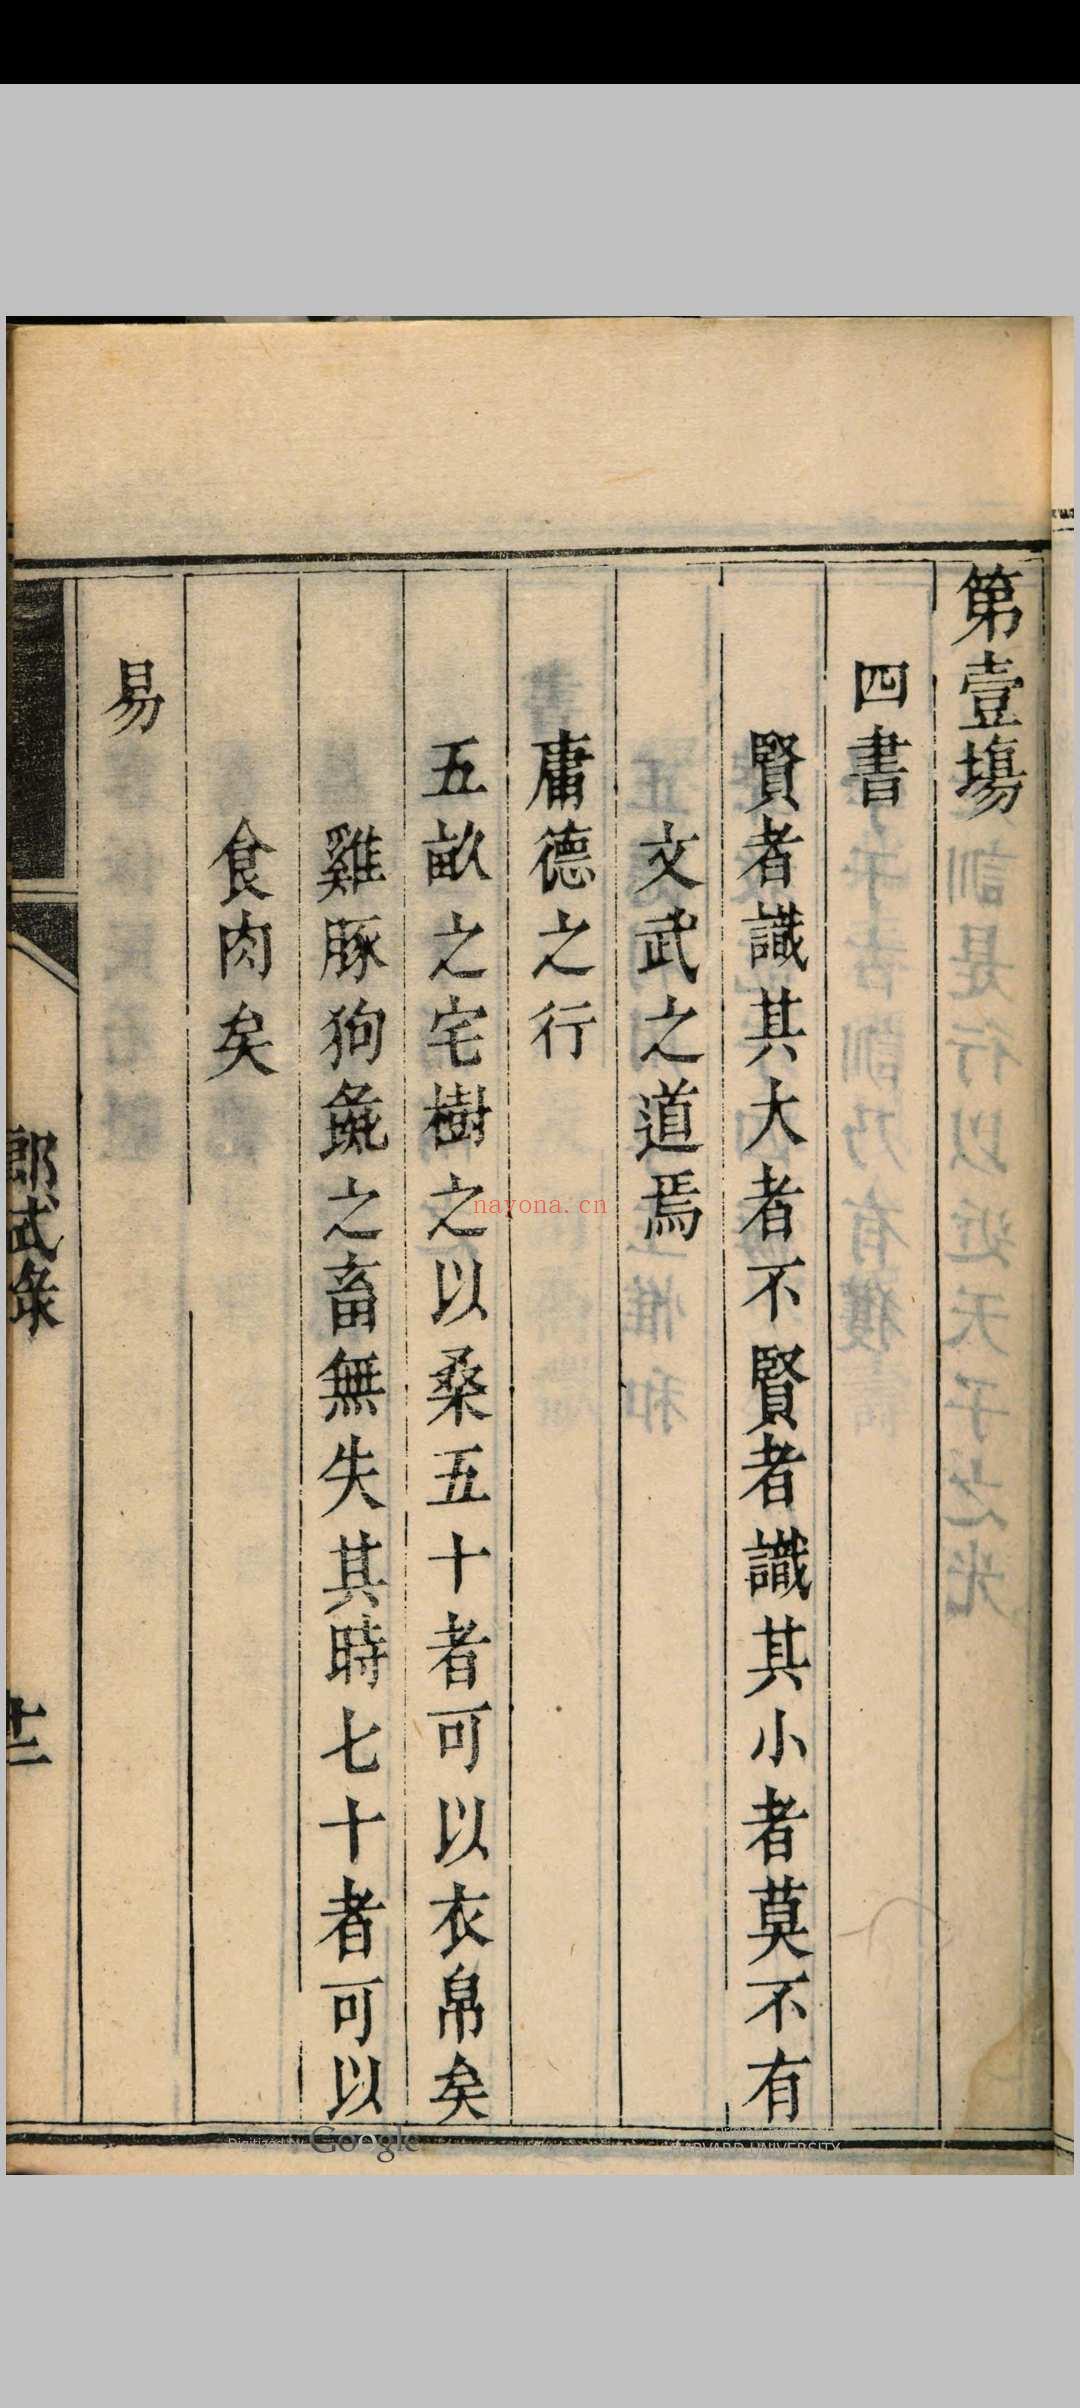 第壹場
四書
賢者識其大者不賢者識其小者莫不有
文武之道焉
庸德之行
五畝之宅樹之以桑五十者可以衣帛矣
雞豚狗彘之畜無失其時七十者可以
食肉矣
易
鄉試錄
十二
nayona.cn
Digitized by Google
HARVARD UNIVERSITY